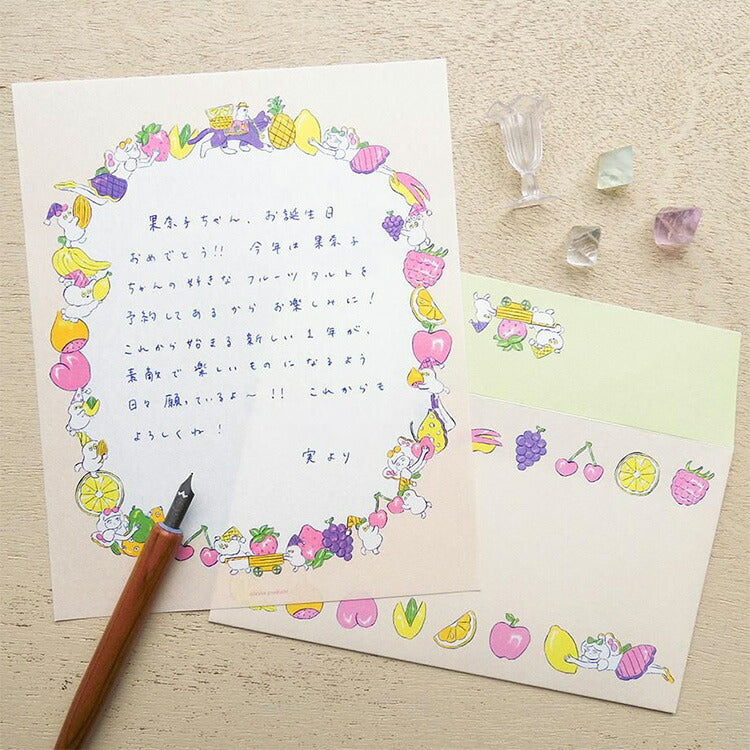 果奈子ちゃん、お誕生日
おめでとう!! 今年は果奈子
ちゃんの好きなフルーツタルトを
予約してあるからお楽しみに!
これから始まる新しい1年が、
素敵で楽しいものになるよう
日々願っているよ〜!! これからも
よろしくね!
実より